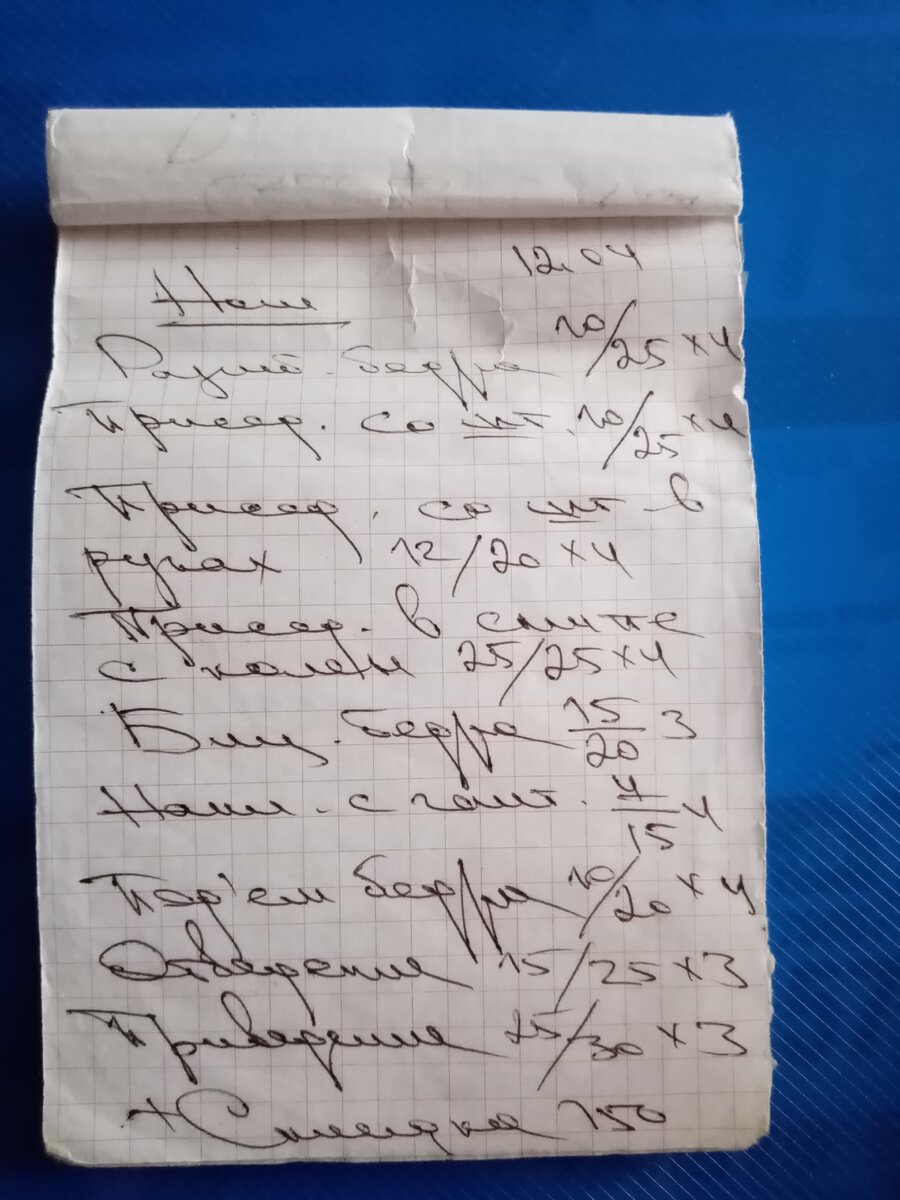 12.04
Ноги
Разгиб. бедра 20/25 x4
Присед. со шт. 20/25 x4
Присед. со шт в
руках 12/20 x4
Присед. в смите
с колен 25/25 x4
Биц. бедра 15/20 3
с гант. 7/15 4
Под'ем бедра 20/20 x4
Отведения 15/25 x3
Приведения 25/30 x3
+Скакалка 750